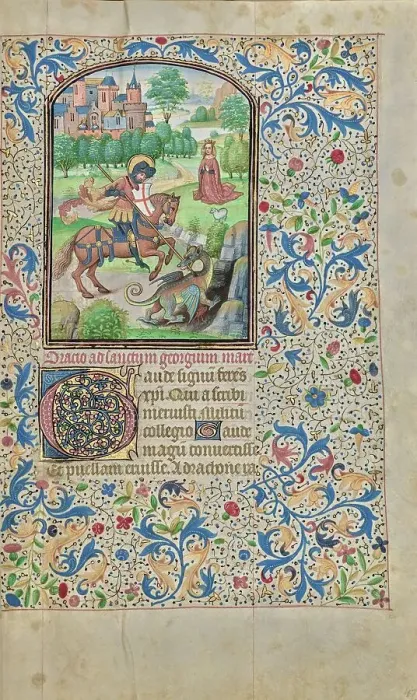 Oracio ad sanctum georgium mart
Gaude signũ ferẽs
xpi. Qui a scribi
meruisti militũ
collegio Gaude
magũ convertisse
Et puellam eruisse. A dracone ra